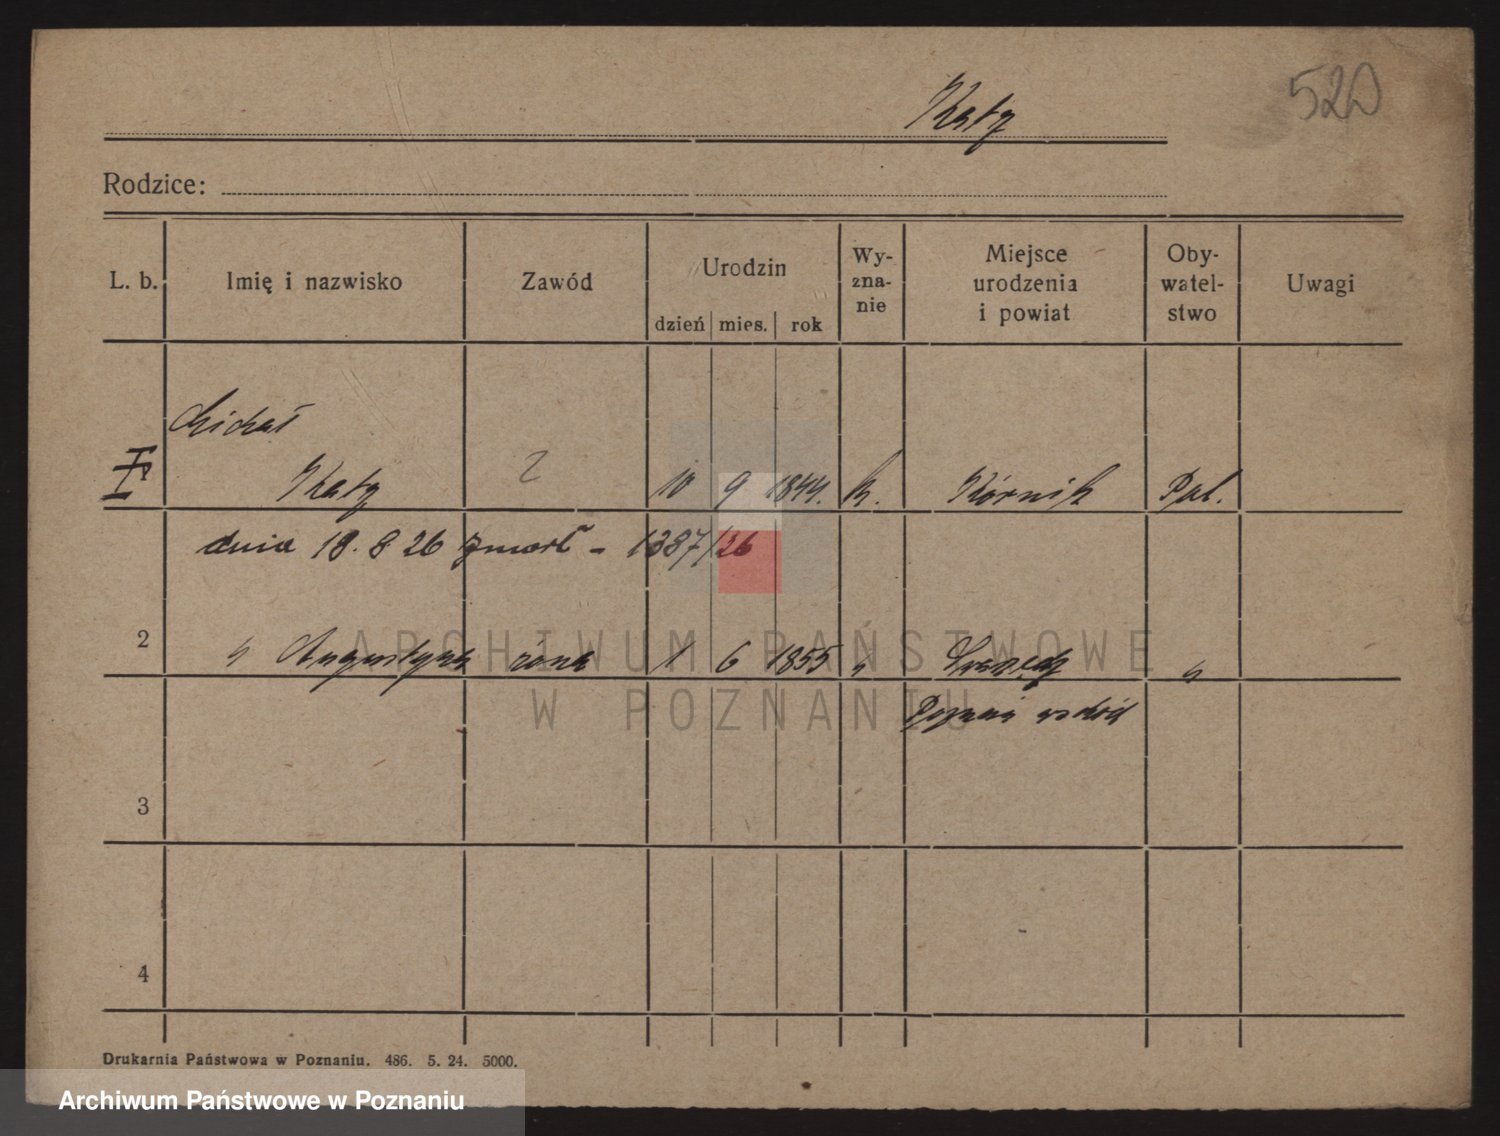 520
Katz
Rodzice:
L. b. Imię i nazwisko Zawód Urodzin dzień mies. rok Wy-zna-nie Miejsce urodzenia i powiat Oby-watel-stwo Uwagi
Michał
Katz 10 9 1844. k. Kórnik Pol.
dnia 18. 8. 26 zmarł - 1387/26
2 " Augustyna żona 1 6 1855 " "
ARCHIWUM PAŃSTWOWE
W POZNANIU
Poznań wschód
3
4
Drukarnia Państwowa w Poznaniu. 486. 5. 24. 5000.
Archiwum Państwowe w Poznaniu